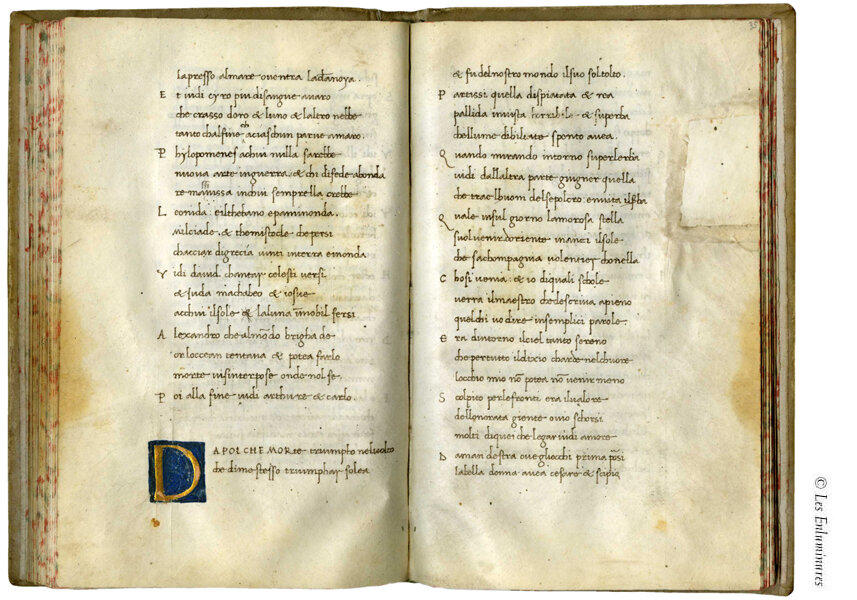 lapresso almare oventra ladanoya.
E t vidi cyro piu disangue avaro
che crasso doro & luno & laltro nebbe
tanto chalfine aciaschun parve amaro.
P hylopomenes achui nulla sarebbe
nuova arte inguerra & chi difede abonda
re massinissa inchui semprella crebbe
L eonida: eilthebano epaminonda.
Milciade. & themistocle cheipersi
chacciar digrecia vinti interra enonda
V idi david chantar celesti versi
& Juda machabeo & iosue
acchui ilsole & laluna immobil fersi
A lexandro che almondo brigha de
or loccean tentava & potea farlo
morte visinterpose onde nol fe.
P oi alla fine vidi arthure & carlo.
D A POI CHE MORte triumpho nelvolto
che dime stesso triumphar solea
35
& fu delnostro mondo ilsuo sol tolto.
P artissi quella dispiatata & rea
pallida invista horribile & superba
chellume dibiltate spento avea.
Q uando mirando intorno superlerba
vidi dallaltra parte giugner quella
che trae lhuom delsepolcro envita ilserba
Q uale insul giorno lamorosa stella
suol venir doriente inanzi ilsole
che saccompagnia volentier chonella
C hosi venia. & io diquali schole
verra ilmaestro che descriva apieno
quelchi vo dire insemplici parole.
E ra dintorno ilciel tanto sereno
che per tutto ildixio chardea nelchuore
locchio mio non potea non venir meno
S colpito perlefronti era ilvalore
dellonorata giente ovio schorsi
molti diquei che legar vidi amore
D aman destra ove gliocchi prima porsi
labella donna avea cesare & scipio
© Les Enluminures